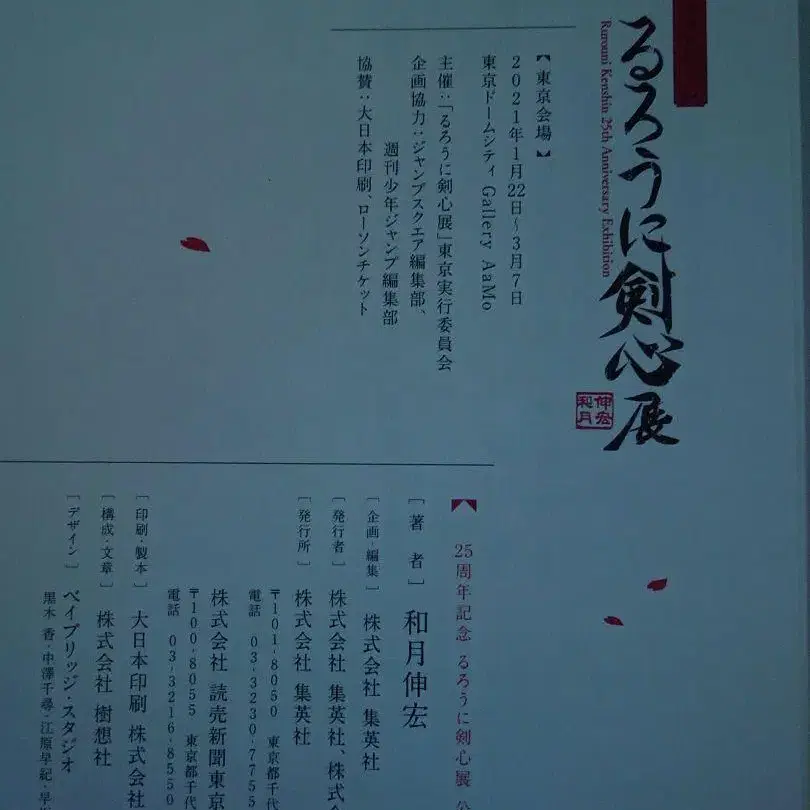 るろうに剣心展
Rurouni Kenshin 25th Anniversary Exhibition
伸宏
和月
【東京会場】
2021年1月22日〜3月7日
東京ドームシティ Gallery AaMo
主催：「るろうに剣心展」東京実行委員会
企画協力：ジャンプスクエア編集部、
週刊少年ジャンプ編集部
協賛：大日本印刷、ローソンチケット
25周年記念 るろうに剣心展 公
［著 者］ 和月伸宏
［企画・編集］ 株式会社 集英社
［発行者］ 株式会社 集英社、株式会
［発行所］ 株式会社 集英社
〒101-8050 東京都千代
電話 03-3230-7755
株式会社 読売新聞東京
〒100-8055 東京都千代
電話 03-3216-8550
［印刷・製本］ 大日本印刷 株式会社
［構成・文章］ 株式会社 樹想社
［デザイン］ ベイブリッジ・スタジオ
黒木 香・中澤千尋・江原早紀・早